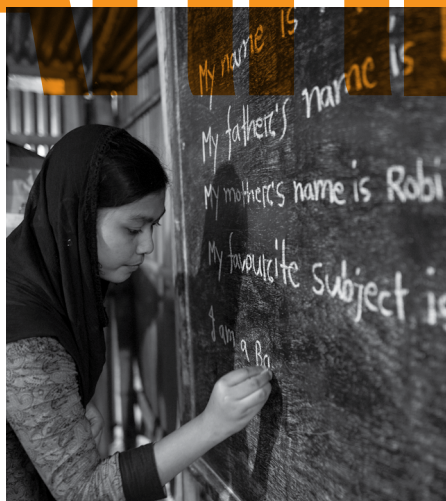 My name is
My father's name is
My mother's name is Robi
My favourite subject is
I am a Ba